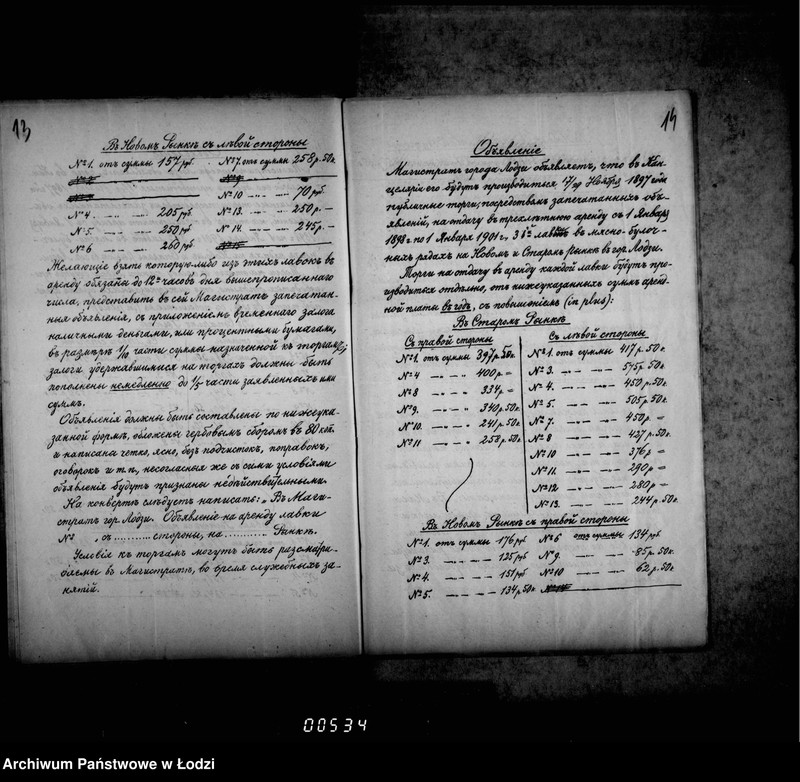 13
Въ Новомъ Рынкѣ съ лѣвой стороны
№ 1. отъ суммы 157 руб. № 7. отъ суммы 258 р. 50 к.
№ 10 — " — 70 руб.
№ 4. — " — 205 руб. № 13. — " — 250 р. —
№ 5. — " — 250 руб № 14. — " — 245 р. —
№ 6 — " — 260 руб
Желающіе взять которую-либо изъ этихъ лавокъ въ
аренду обязаны до 12ти часовъ дня вышепрописаннаго
числа, представить въ сей Магистратъ запечатан-
ныя объявленія, съ приложеніемъ временнаго залога
наличными деньгами, или процентными бумагами,
въ размѣрѣ 1/10 части суммы назначенной къ торгамъ;
залоги удержавшихся на торгахъ должны быть
пополнены немедленно до 1/5 части заявленныхъ ими
суммъ.
Объявленія должны быть составлены по нижеука-
занной формѣ, обложены гербовымъ сборомъ въ 80 коп.
и написаны четко, ясно, безъ подчистокъ, поправокъ,
оговорокъ и т.п., несогласныя же съ сими условіями
объявленія будутъ признаны недѣйствительными.
На конвертѣ слѣдуетъ написать: „Въ Маги-
стратъ гор. Лодзи. Объявленіе на аренду лавки
№ , съ .......... стороны, на .......... Рынкѣ.
Условія къ торгамъ могутъ быть разсматри-
ваемы въ Магистратѣ, во время служебныхъ за-
нятій.
14
Объявленіе
Магистратъ города Лодзи объявляетъ, что въ Кан-
целяріи его будутъ производиться 17/29 Ноября 1897 года
публичные торги, посредствомъ запечатанныхъ объ-
явленій, на отдачу въ трехлѣтнюю аренду съ 1 Января
1898 г. по 1 Января 1901 г., лавокъ въ мясно-булоч-
ныхъ рядахъ на Новомъ и Старомъ Рынкѣ въ гор. Лодзи.
Торги на отдачу въ аренду каждой лавки будутъ про-
изводиться отдѣльно, отъ нижеуказанныхъ суммъ аренд-
ной платы въ годъ, съ повышеніемъ (in plus):
Въ Старомъ Рынкѣ
Съ правой стороны
№ 1. отъ суммы 397 р. 50 к.
№ 4 — " — 400 р =
№ 8 — " — 334 р =
№ 9. — " — 340 р. 50 к.
№ 10. — " — 240 р. 50 к.
№ 11 — " — 258 р. 50 к.
Съ лѣвой стороны
№ 1. отъ суммы 417 р. 50 к.
№ 3. — " — 545 р. 50 к.
№ 4. — " — 450 р. 50 к.
№ 5. — " — 505 р. 50 к.
№ 7. — " — 450 р =
№ 8 — " — 427 р. 50 к.
№ 10 — " — 376 р =
№ 11. — " — 290 р =
№ 12 — " — 280 р =
№ 13. — " — 244 р. 50 к.
Въ Новомъ Рынкѣ съ правой стороны
№ 1. отъ суммы 176 руб № 6 отъ суммы 134 руб
№ 3. — " — 125 руб № 9. — " — 85 р. 50 к.
№ 4. — " — 151 руб № 10 — " — 62 р. 50 к.
№ 5. — " — 134 р. 50 к
00534
Archiwum Państwowe w Łodzi